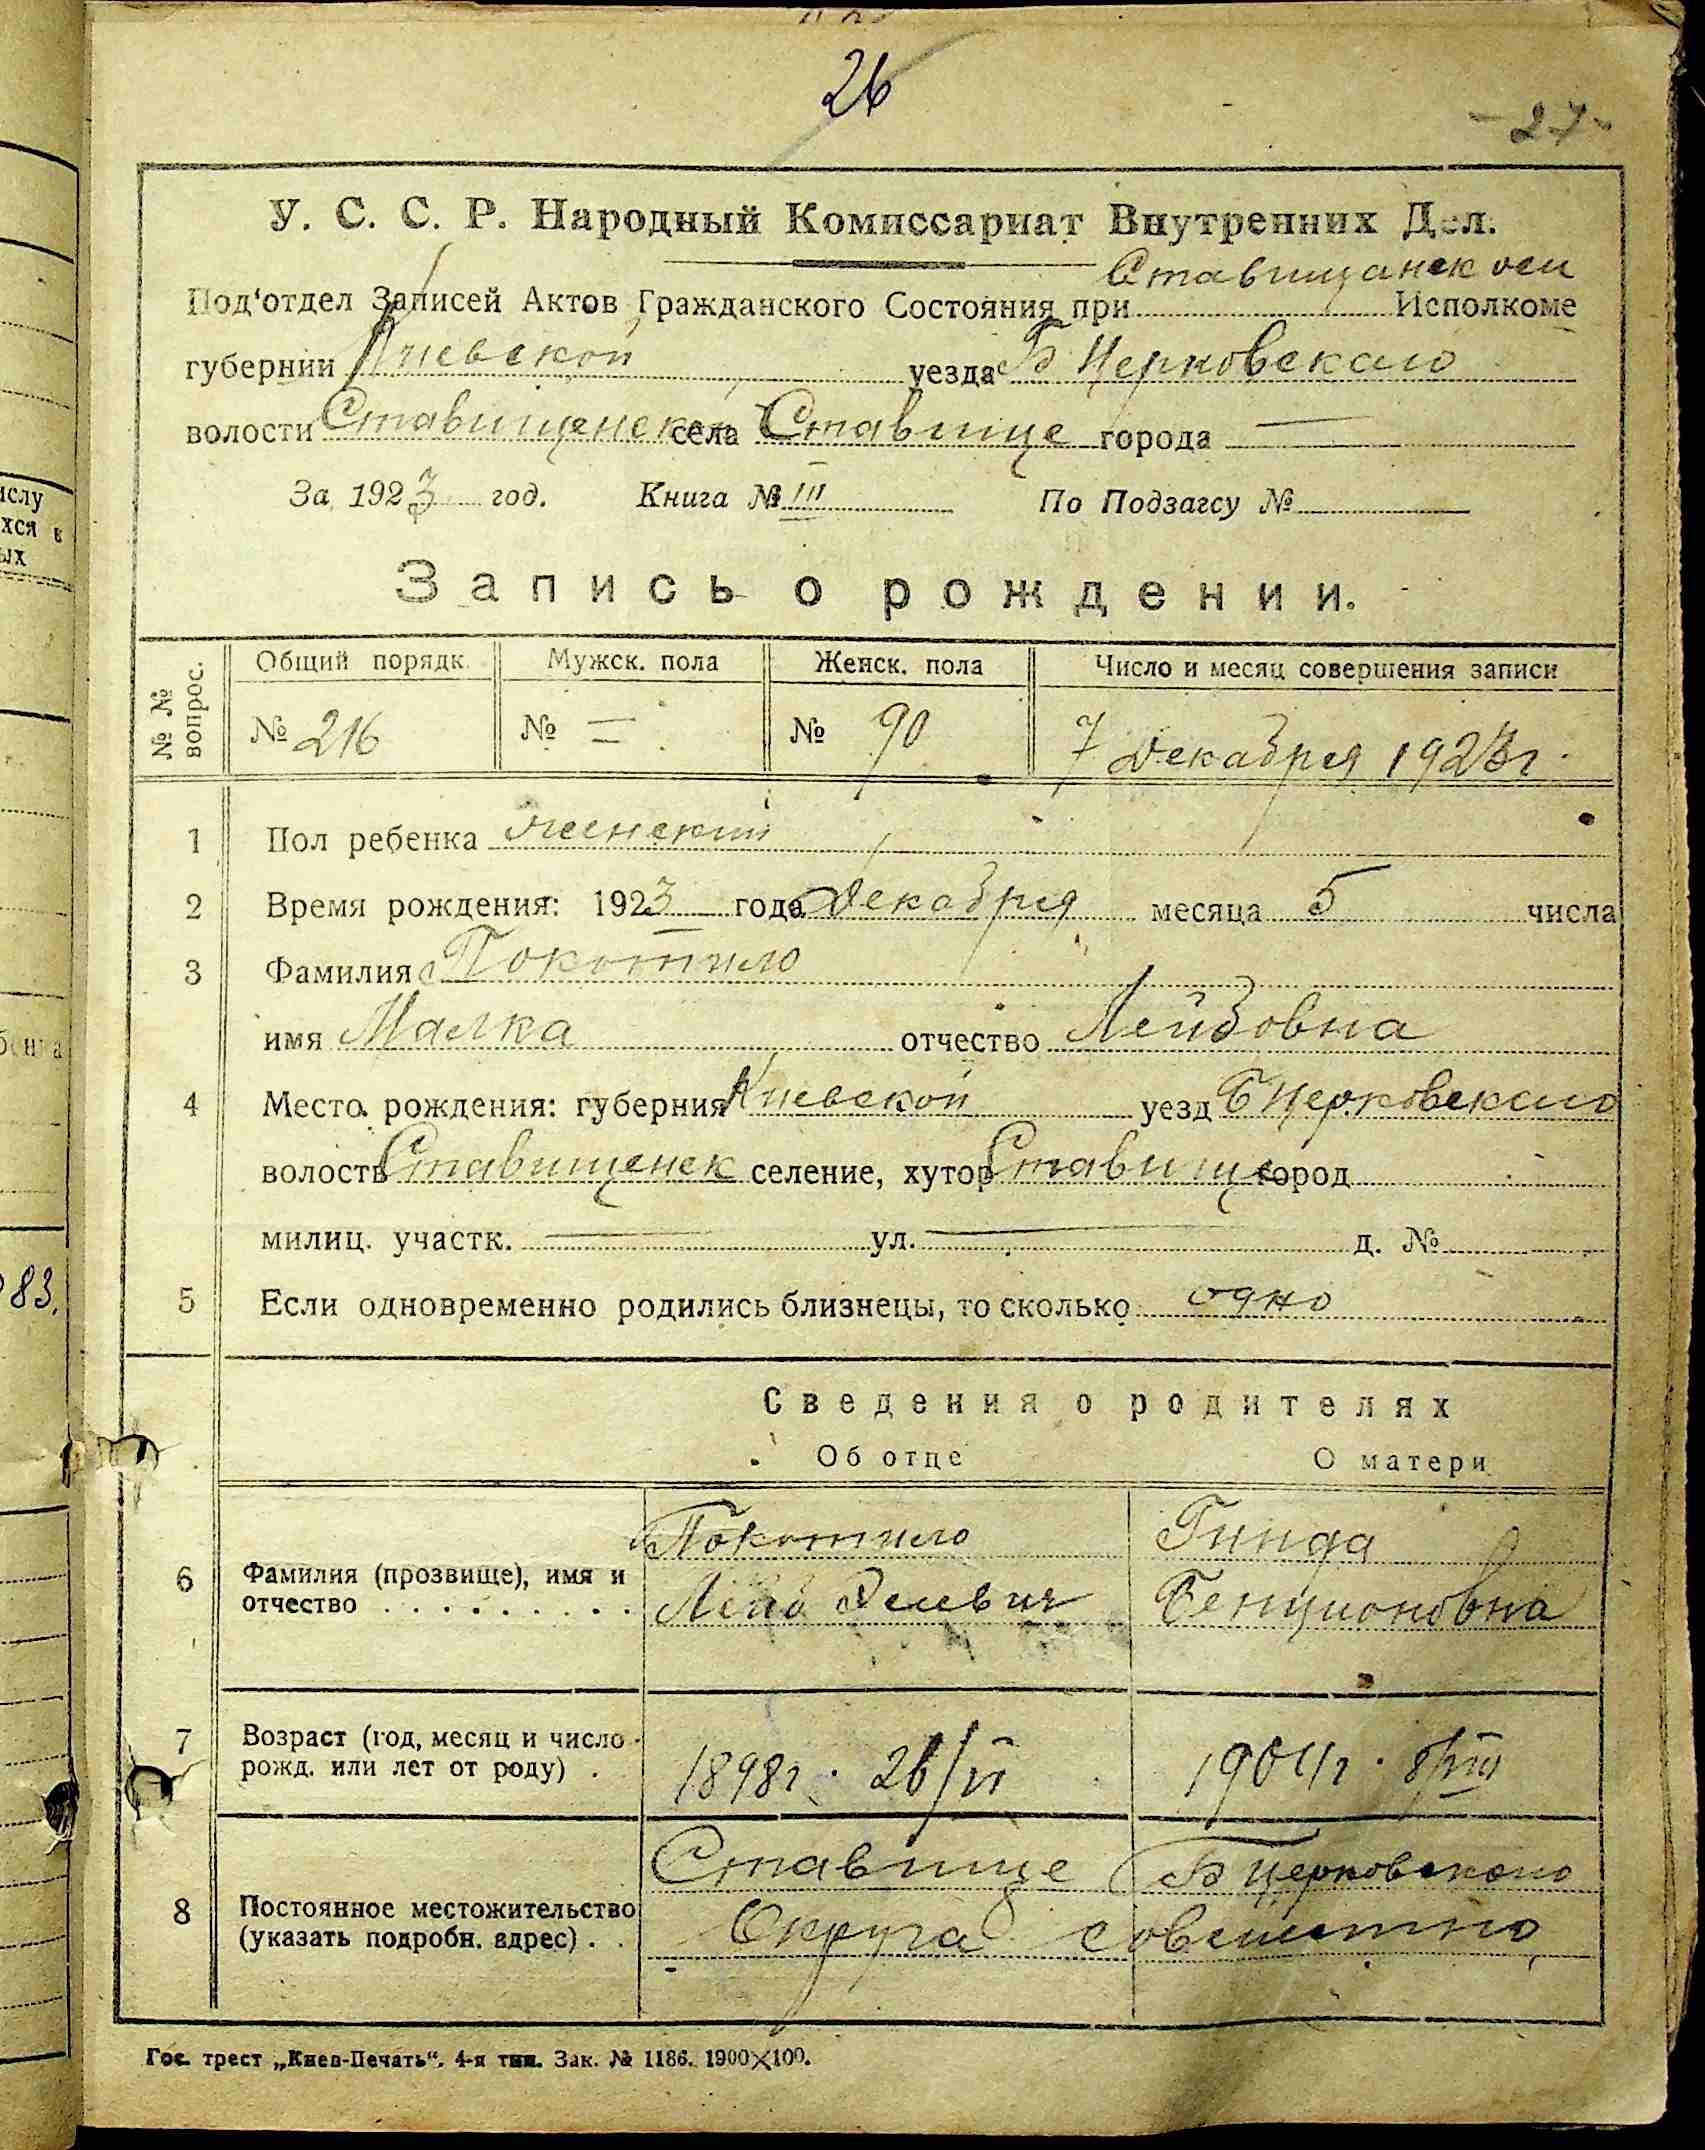 26
- 27 -
У. С. С. Р. Народный Комиссариат Внутренних Дел.
Под'отдел Записей Актов Гражданского Состояния при Ставищанском Исполкоме
губернии Киевской уезда Б Церковского
волости Ставищенской села Ставище города —
За 1923 год. Книга № III По Подзагсу №
Запись о рождении.
№ № вопрос. Общий порядк. Мужск. пола Женск. пола Число и месяц совершения записи
№ 216 № — № 90 7 Декабря 1923 г.
1 Пол ребенка женский
2 Время рождения: 1923 года Декабря месяца 5 числа
3 Фамилия Покотило
имя Малка отчество Лейбовна
4 Место рождения: губерния Киевской уезд Б Церковского
волость Ставищенск селение, хутор Ставище город
милиц. участк. — ул. — д. №
5 Если одновременно родились близнецы, то сколько одно
Сведения о родителях
Об отце О матери
Покотило Гинда
6 Фамилия (прозвище), имя и отчество . . . . . . . . . . Лейб Элевич Бенционовна
7 Возраст (год, месяц и число рожд. или лет от роду) . 1898 г. 26/VI 1904 г. 8/VIII
Ставище Б Церковского
8 Постоянное местожительство (указать подробн. адрес) . . Округа совместно
Гос. трест „Киев-Печать“. 4-я тип. Зак. № 1186. 1900×100.
83.